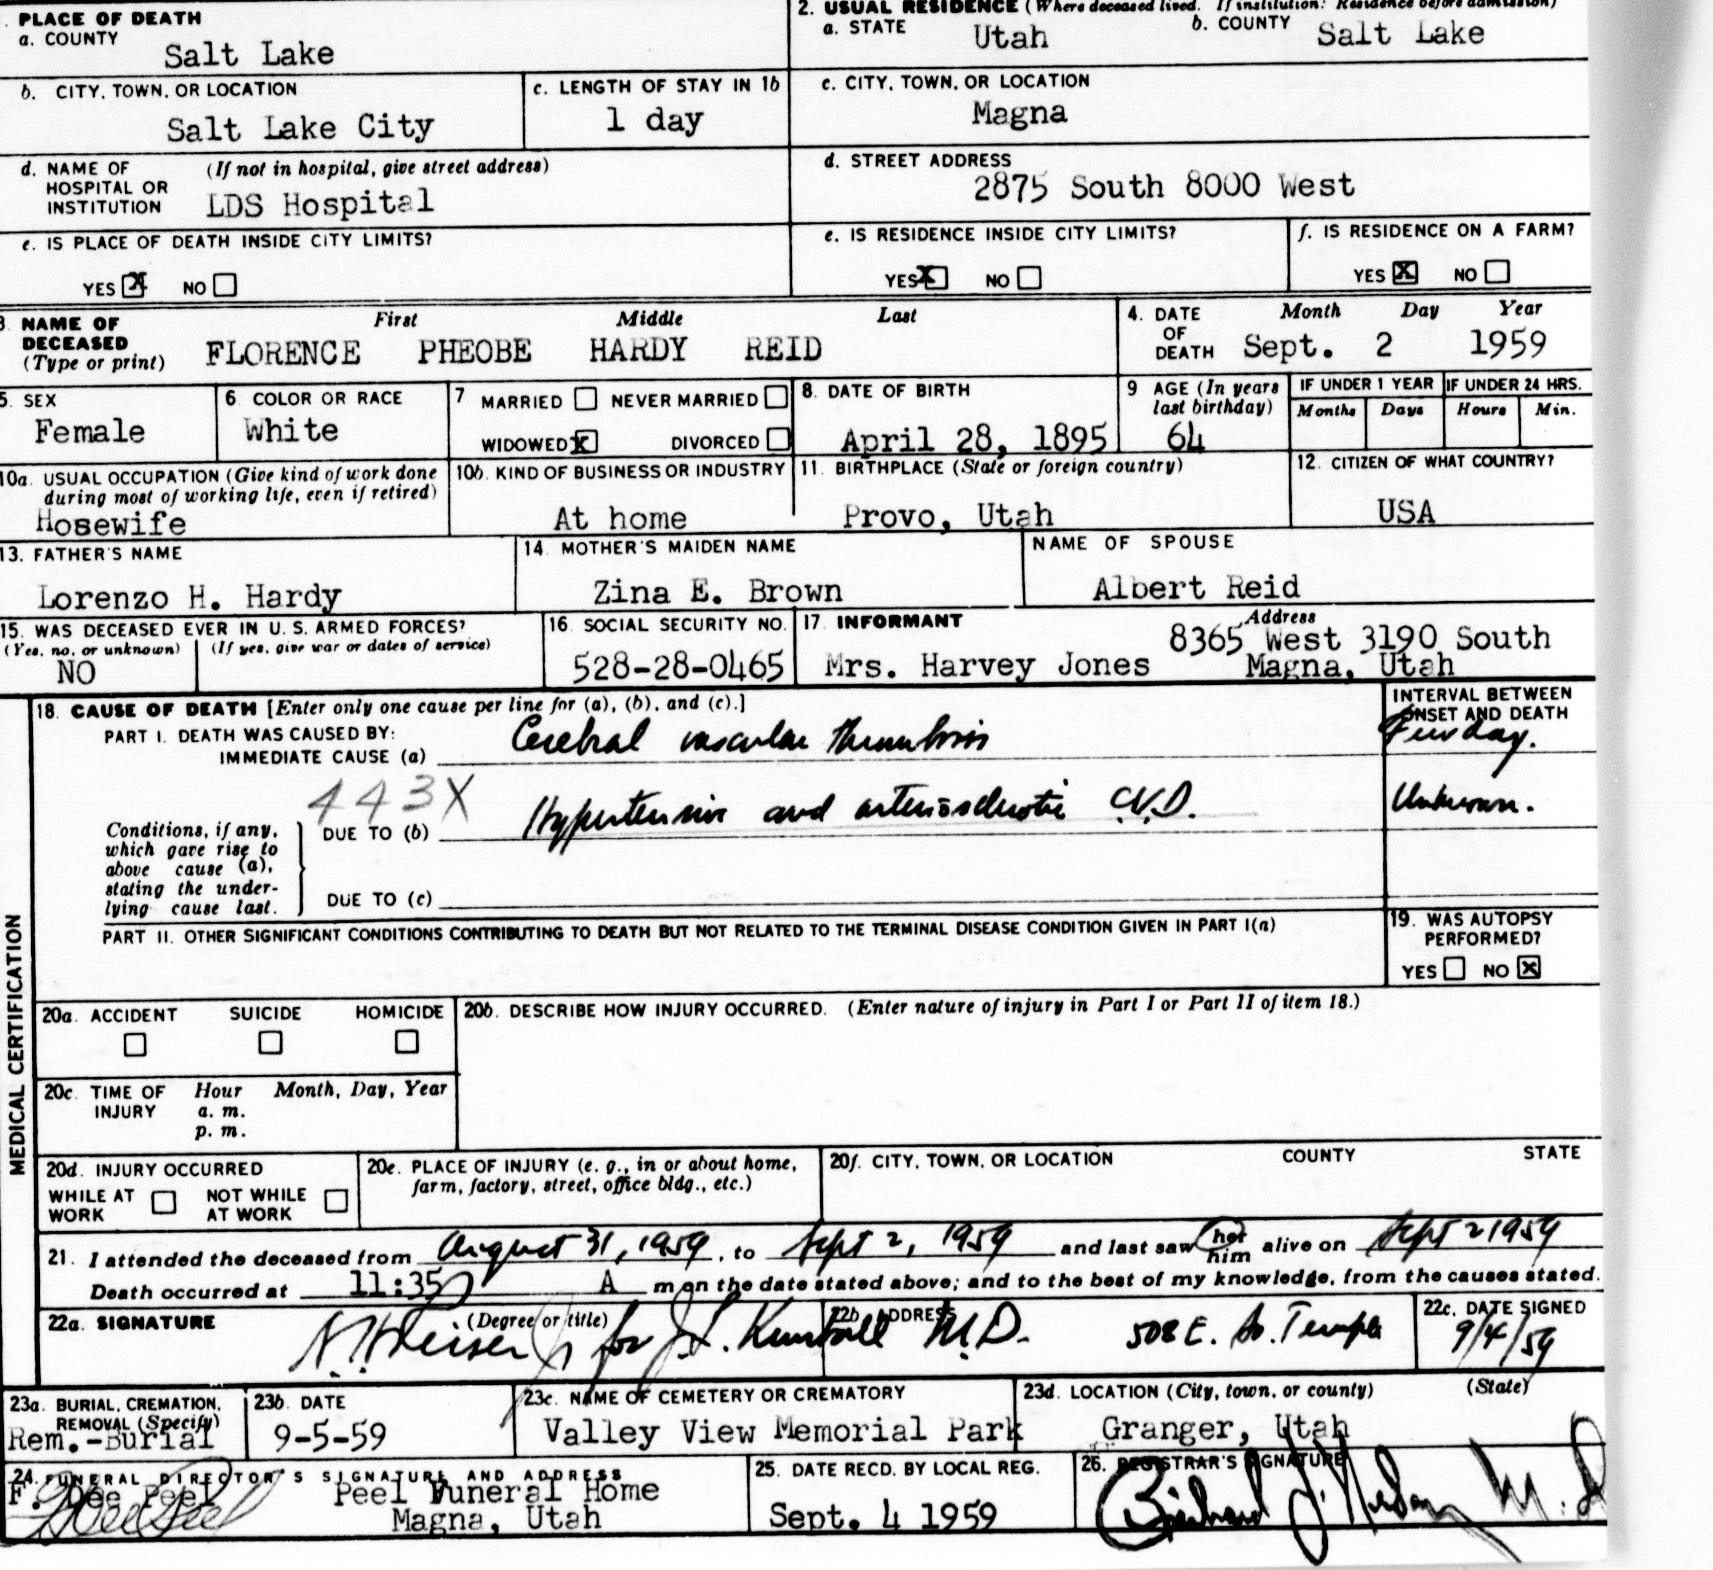 1. PLACE OF DEATH
a. COUNTY
Salt Lake
2. USUAL RESIDENCE (Where deceased lived. If institution: Residence before admission)
a. STATE Utah b. COUNTY Salt Lake
b. CITY, TOWN, OR LOCATION
Salt Lake City
c. LENGTH OF STAY IN 1b
1 day
c. CITY, TOWN, OR LOCATION
Magna
d. NAME OF HOSPITAL OR INSTITUTION (If not in hospital, give street address)
LDS Hospital
d. STREET ADDRESS
2875 South 8000 West
e. IS PLACE OF DEATH INSIDE CITY LIMITS?
YES X NO
e. IS RESIDENCE INSIDE CITY LIMITS?
YES X NO
f. IS RESIDENCE ON A FARM?
YES X NO
3. NAME OF DECEASED (Type or print)
First Middle Last
FLORENCE PHEOBE HARDY REID
4. DATE OF DEATH
Month Day Year
Sept. 2 1959
5. SEX
Female
6. COLOR OR RACE
White
7 MARRIED NEVER MARRIED
WIDOWED X DIVORCED
8. DATE OF BIRTH
April 28, 1895
9 AGE (In years last birthday)
64
IF UNDER 1 YEAR
Months Days
IF UNDER 24 HRS.
Hours Min.
10a. USUAL OCCUPATION (Give kind of work done
during most of working life, even if retired)
Hosewife
10b. KIND OF BUSINESS OR INDUSTRY
At home
11. BIRTHPLACE (State or foreign country)
Provo, Utah
12. CITIZEN OF WHAT COUNTRY?
USA
13. FATHER'S NAME
Lorenzo H. Hardy
14. MOTHER'S MAIDEN NAME
Zina E. Brown
NAME OF SPOUSE
Albert Reid
15. WAS DECEASED EVER IN U. S. ARMED FORCES?
(Yes, no, or unknown) (If yes, give war or dates of service)
NO
16. SOCIAL SECURITY NO.
528-28-0465
17 INFORMANT Address
Mrs. Harvey Jones
8365 West 3190 South
Magna, Utah
MEDICAL CERTIFICATION
18. CAUSE OF DEATH [Enter only one cause per line for (a), (b), and (c).]
PART I. DEATH WAS CAUSED BY:
IMMEDIATE CAUSE (a) Cerebral vascular thrombosis
INTERVAL BETWEEN
ONSET AND DEATH
Few day.
443X
Conditions, if any,
which gave rise to
above cause (a),
stating the under-
lying cause last.
DUE TO (b) Hypertensive and arteriosclerotic C.V.D.
Unknown.
DUE TO (c)
PART II. OTHER SIGNIFICANT CONDITIONS CONTRIBUTING TO DEATH BUT NOT RELATED TO THE TERMINAL DISEASE CONDITION GIVEN IN PART I(a)
19. WAS AUTOPSY PERFORMED?
YES NO X
20a. ACCIDENT SUICIDE HOMICIDE
20b. DESCRIBE HOW INJURY OCCURRED. (Enter nature of injury in Part I or Part II of item 18.)
20c. TIME OF INJURY Hour Month, Day, Year
a. m.
p. m.
20d. INJURY OCCURRED
WHILE AT WORK NOT WHILE AT WORK
20e. PLACE OF INJURY (e. g., in or about home,
farm, factory, street, office bldg., etc.)
20f. CITY, TOWN, OR LOCATION COUNTY STATE
21. I attended the deceased from August 31, 1959, to Sept 2, 1959 and last saw her him alive on Sept 2 1959
Death occurred at 11:35 A m on the date stated above; and to the best of my knowledge, from the causes stated.
22a. SIGNATURE (Degree or title)
for J. L. Kimball M.D.
22b. ADDRESS
508 E. So. Temple
22c. DATE SIGNED
9/4/59
23a. BURIAL, CREMATION,
REMOVAL (Specify)
Rem.-Burial
23b. DATE
9-5-59
23c. NAME OF CEMETERY OR CREMATORY
Valley View Memorial Park
23d. LOCATION (City, town, or county) (State)
Granger, Utah
24. FUNERAL DIRECTOR'S SIGNATURE AND ADDRESS
F. Dee Peel Peel Funeral Home
Magna, Utah
25. DATE RECD. BY LOCAL REG.
Sept. 4 1959
26. REGISTRAR'S SIGNATURE
M.D